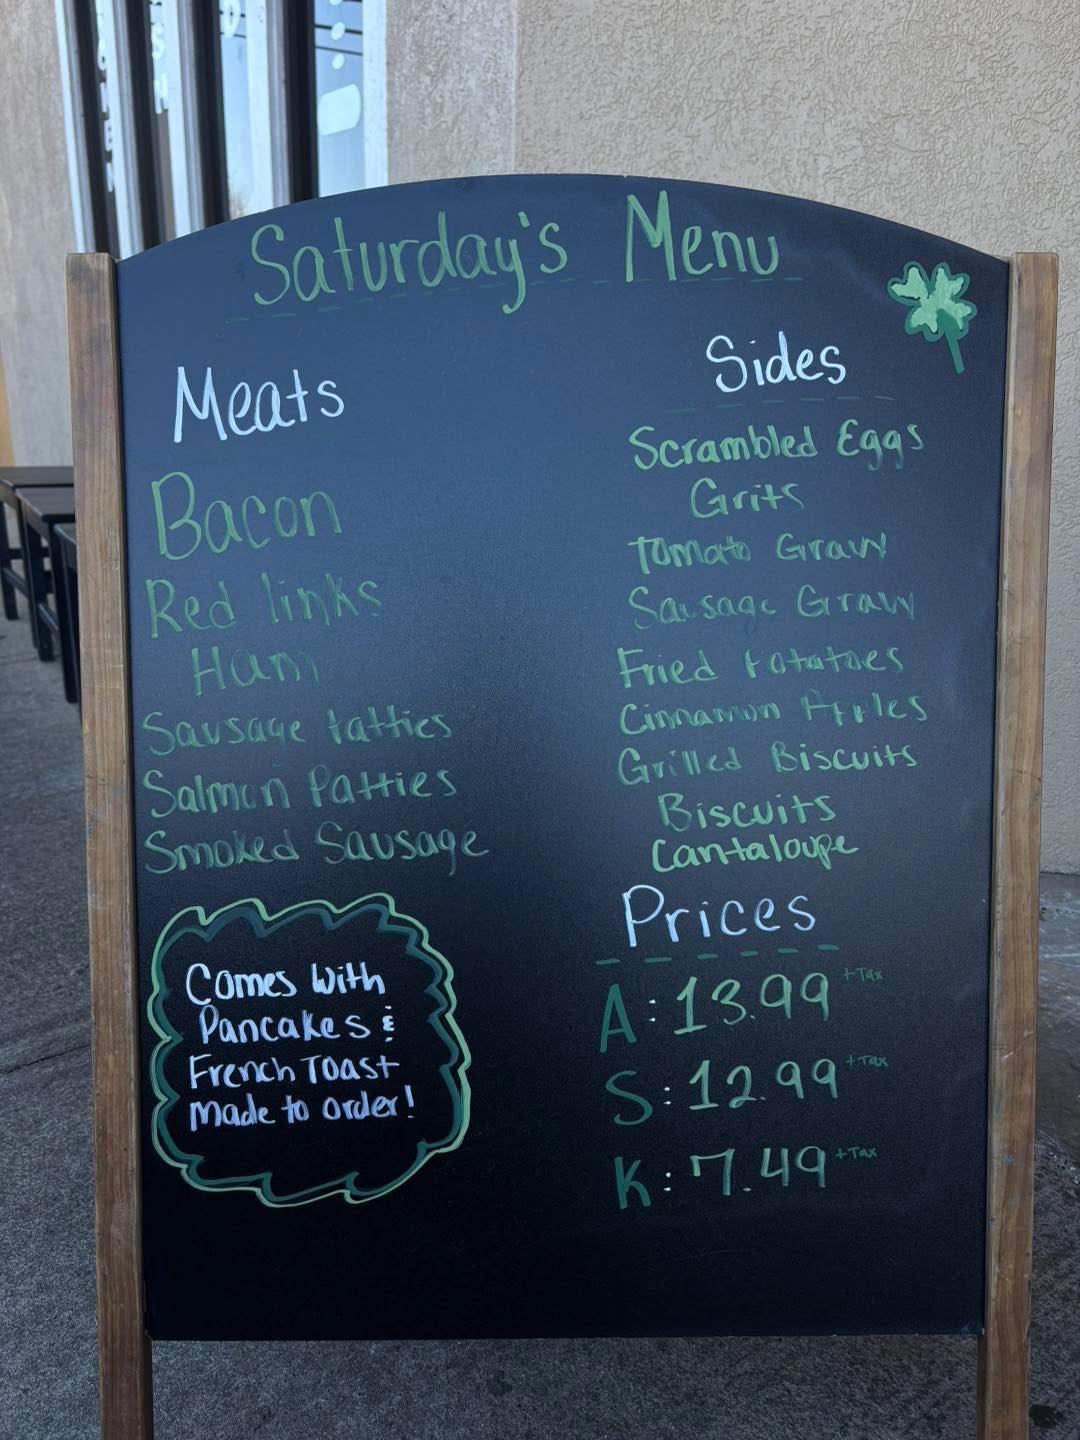 Saturday's Menu
Meats
Bacon
Red links
Ham
Sausage Patties
Salmon Patties
Smoked Sausage
Comes With
Pancakes &
French Toast
Made to order!
Sides
Scrambled Eggs
Grits
Tomato Gravy
Sausage Gravy
Fried Potatoes
Cinnamon Apples
Grilled Biscuits
Biscuits
Cantaloupe
Prices
A: 13.99 +Tax
S: 12.99 +Tax
K: 7.49 +Tax